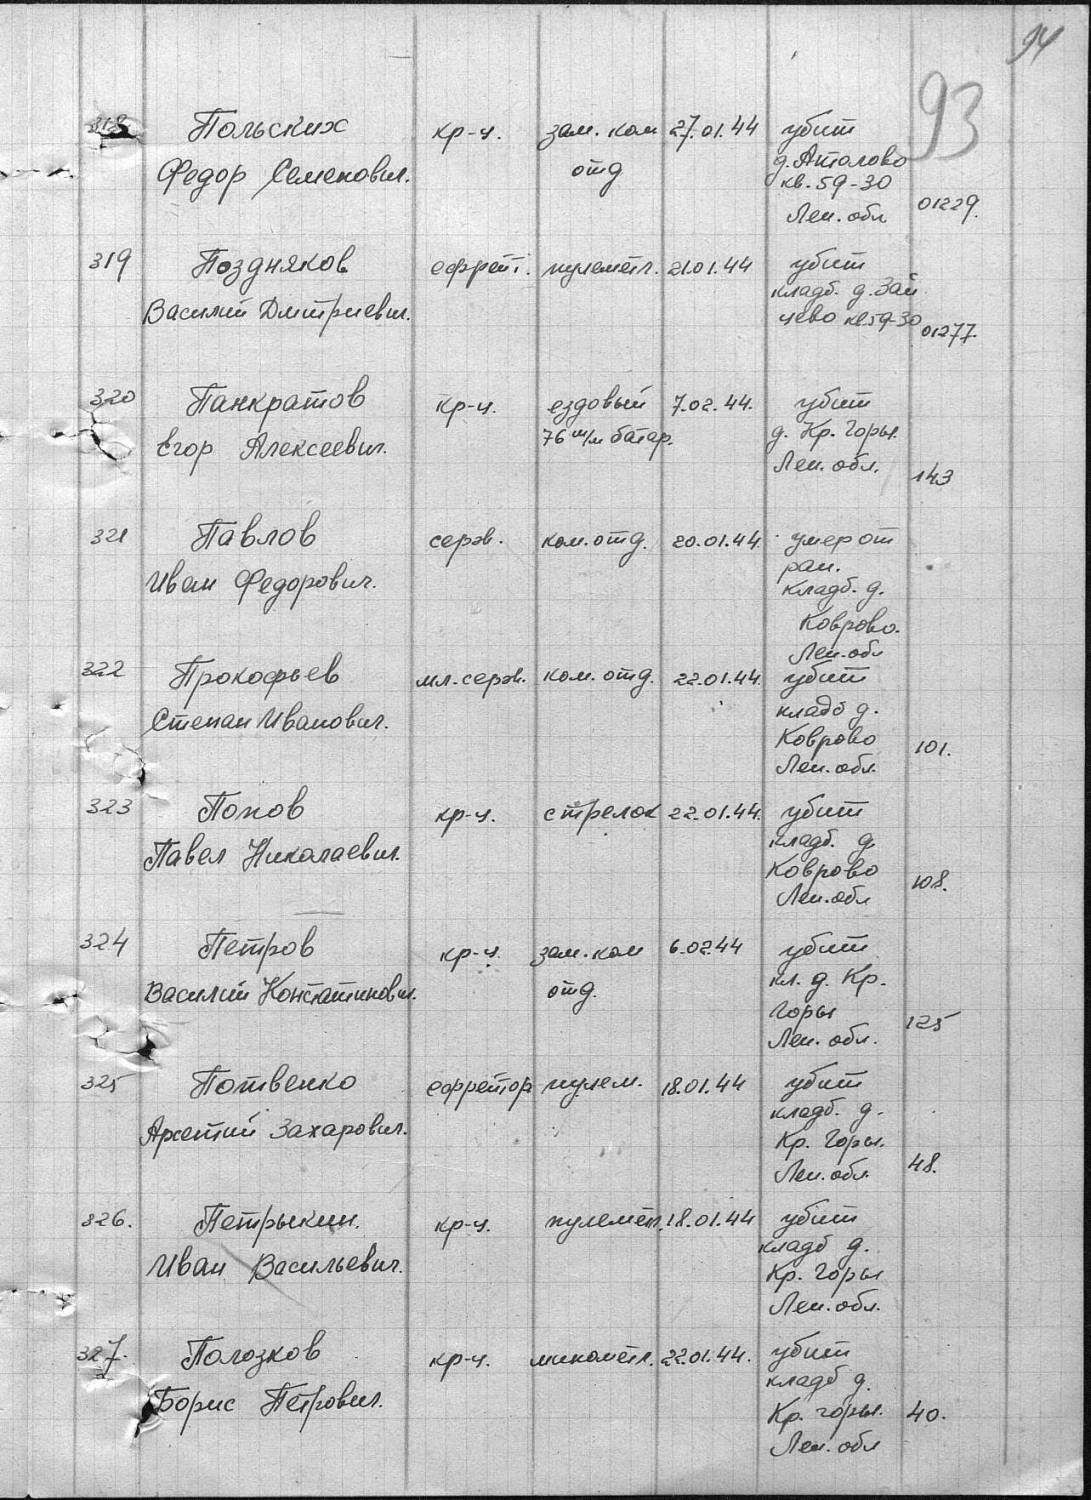 94
93
318 Польских кр-ц. зам. ком 27.01.44 убит
Федор Семенович. отд д. Аталово
кв. 59-30
Лен. обл 01229.
319 Поздняков ефрейт. пулеметч. 21.01.44 убит
Василий Дмитриевич. кладб. д. Зай
цево кв 59-30 01277.
320 Панкратов кр-ц. ездовый 7.02.44. убит
Егор Алексеевич. 76 м/м батар. д. Кр. Горы.
Лен. обл. 143
321 Павлов серж. ком. отд. 20.01.44. умер от
Иван Федорович. ран.
кладб. д.
Коврово.
Лен. обл
322 Прокофьев мл. серж. ком. отд. 22.01.44. убит
Степан Иванович. кладб д.
Коврово 101.
Лен. обл.
323 Попов кр-ц. стрелок 22.01.44. убит
Павел Николаевич. кладб. д.
Коврово
Лен. обл 108.
324 Петров кр-ц. зам. ком 6.02.44 убит
Василий Констатинович. отд. кл. д. Кр.
Горы 125
Лен. обл.
325 Потвенко ефрейтор пулем. 18.01.44 убит
Арсетий Захарович. кладб. д.
Кр. Горы.
Лен. обл. 48.
326. Петрыкин. кр-ц. пулемет. 18.01.44 убит
Иван Васильевич. кладб д.
Кр. Горы
Лен. обл.
327. Полозков кр-ц. минометч. 22.01.44. убит
Борис Петрович. кладб д.
Кр. горы. 40.
Лен. обл